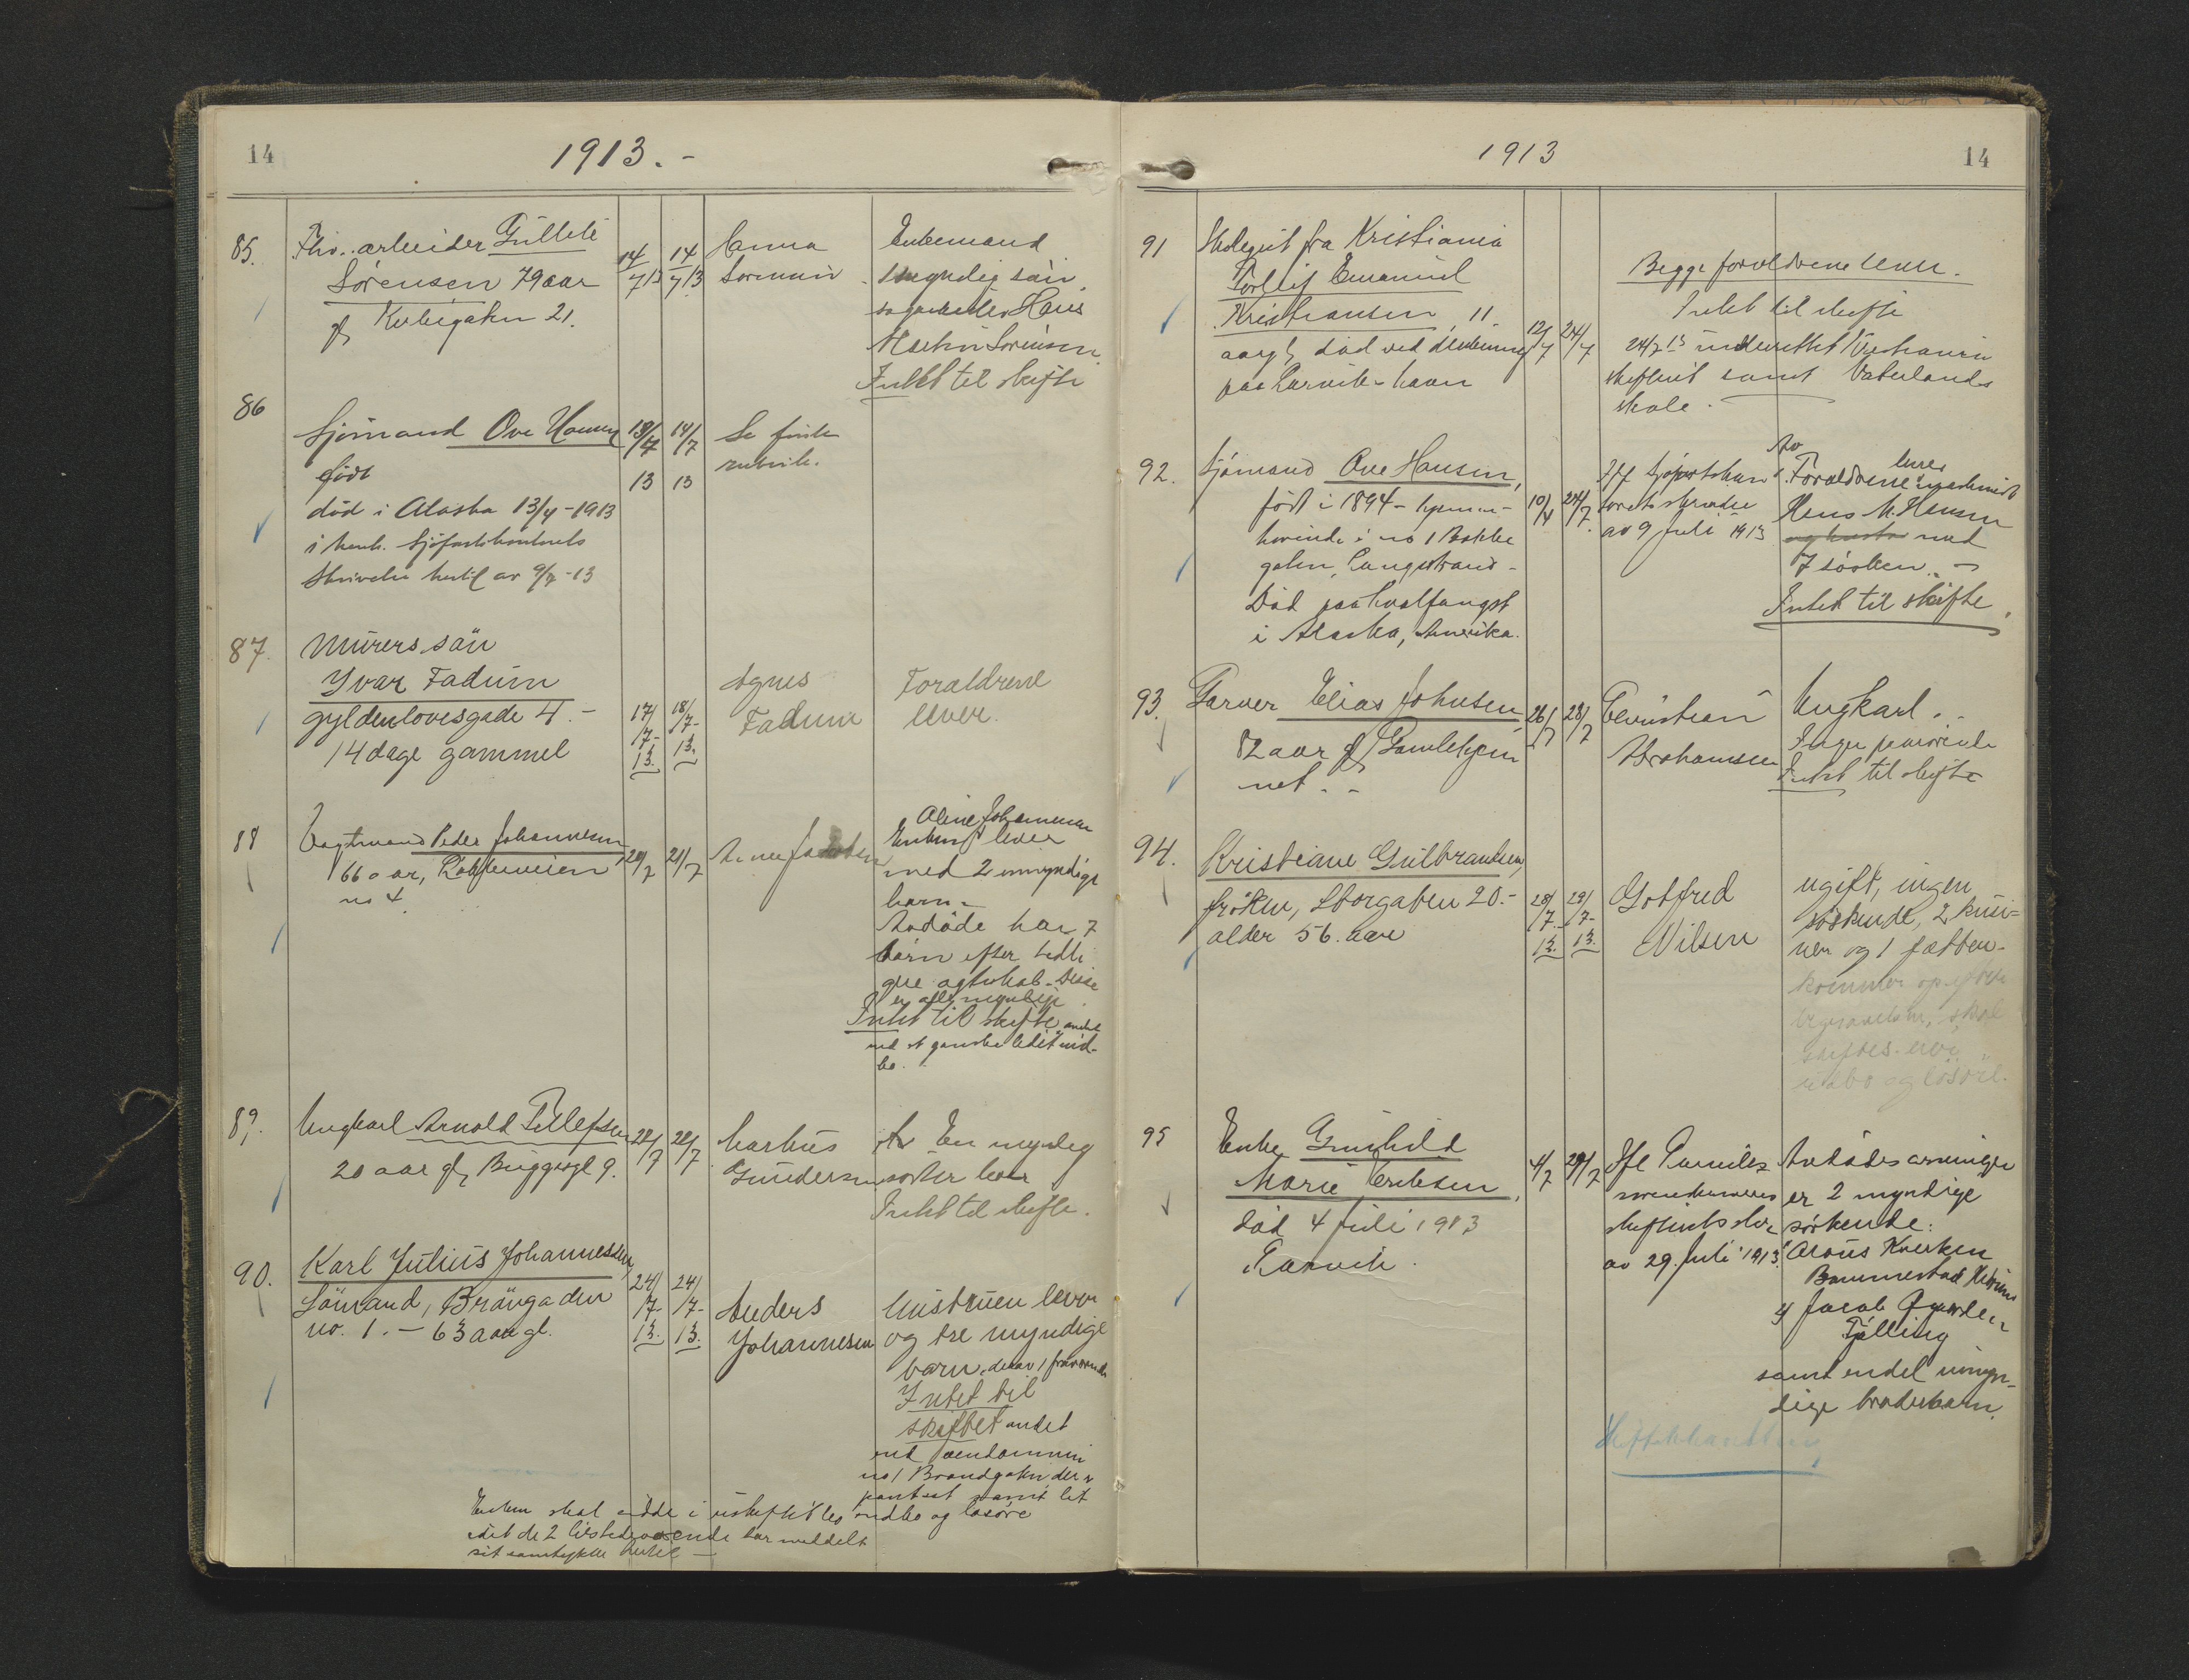 14
1913. -
85.
Fhv. arbeider Gullek
Sørensen 79 aar
gl. Kubegaten 21.
14/7 13
14/7 13
Anna
Sørensen
Enkemand
1 myndig søn,
sagarbeider Hans
Martin Sørensen.
Intet til skifte
86
Sjömand Ove Hansen
født
död i Alaska 13/4 - 1913
i henh. Sjöfartskontorets
Skrivelse hertil av 9/7 - 13
13/4 13
14/7 13
Se finke
rubrik.
87.
Murers sön
Yvar Fadum
gyldenlovesgade 4. -
14 dage gammel
17/7- 13.
18/7- 13.
Agnes
Fadum
Foraldrene
lever.
88
Vagtmand Peder Johannesen,
66 aar,
no 4
20/7
21/7
Aline Johannesen
Enken lever
med 2 umyndige
barn -
Avdöde har 7
børn efter tidli
gere egteskab - Disse
er alle myndige.
Intet til skifte andet
end et ganske lidet ind-
bo.
89.
Ungkarl Arnold Tellefsen
20 aar gl, Bryggegt 9.
22/7
22/7
Markus
Gundersen
En myndig
søster lever
Intet til skifte.
90.
Karl Julius Johannessen,
Sömand, Brångaden
no. 1. - 63 aar gl.
24/7- 13.
24/7- 13.
Anders
Johannesen
Hustruen lever
og tre myndige
barn, derav 1 fraværende
Intet til
skiftet andet
end eiendommen
no 1 Brandgaten der er
pantsat samt lit
indbo og løsøre
Enken skal sidde i uskiftet bo
idet de 2 tilstedeværende har meddelt
sit samtykke hertil -
1913
14
91
Skolegut fra Kristiania
Torleif Emanuel
Kristiansen, 11
aar gl, död ved drukning
paa Larvik havn
12/7
24/7
Begge foreldrene lever.
Intet til skifte
24/7 13 underrettet Kristiania
skifteret samt Vaterlands
skole.
92.
Sjömand Ove Hansen,
født i 1894 - hjemme-
hørende i no 1 Bakke
gaten, Langestrand -
Död paa hvalfangst
i Alaska, Amerika.
10/4
24/7.
Ifl Sjöfartskon
torets skrivelse
av 9 Juli 1913
Foreldrene lever
Hens M. Hansen
med
7 søsken. -
Intet til skifte.
93.
Farver Elias Johnsen
82 aar gl, Gamlehjem
met. -
26/7
28/7
Christian
Abrahamsen
Ungkarl. -
Ingen
Intet til skifte
94.
Kristiane Gulbrandsen,
fröken, Storgaten 20. -
alder 56. aar
28/7- 13.
29/7- 13.
Gotfred
Nilsen
ugift, ingen
söskende, 2 kusi=
ner og 1 fætter -
kommer op efter
begravelsen, skal
skiftes.
indbo og løsøre.
95
Enke Gunhild
Marie Eriksen,
død 4 Juli 1913
Larvik.
4/7
29/7
Ifl
skifterets skr
av 29. Juli 1913.
Avdødes arvinger
er 2 myndige
søskende:
Kverken
Bommestad Hedrum
og Jacob
Tjølling
samt endel umyn-
dige broderbarn.